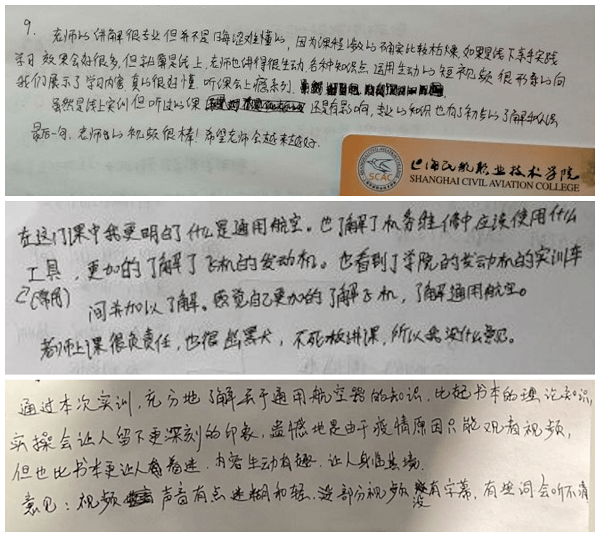 9. 老师的讲解很专业但并不是晦涩难懂的,因为课程教的确实比较枯燥.如果是线下亲手实践
学习效果会好很多,但就算是线上,老师也讲得很生动.各种知识点,运用生动的短视频很形象的向
我们展示了学习内容真的很好懂.听课会上瘾系列.
虽然是线上实训但听过的课 还是有影响,专业的知识也有了初步的了解和认识
最后一句,老师的视频很棒!希望老师会越来越好.
上海民航职业技术学院
SHANGHAI CIVIL AVIATION COLLEGE
SCAC
在这门课中我更明白了什么是通用航空。也了解了机务维修中应该使用什么
工具,更加的了解了飞机的发动机。也看到了学院的发动机的实训车
间并加以了解。感觉自己更加的了解飞机,了解通用航空。
老师上课很负责任,也很幽默,不死板讲课,所以我没什么意见。
通过本次实训,充分地了解关于通用航空器的知识,比起书本的理论知识,
实操会让人留下更深刻的印象,遗憾地是由于疫情原因只能观看视频,
但也比书本更让人着迷.内容生动有趣.让人身临其境.
意见:视频 声音有点迷糊和轻.没部分视频没有字幕,有些词会听不清